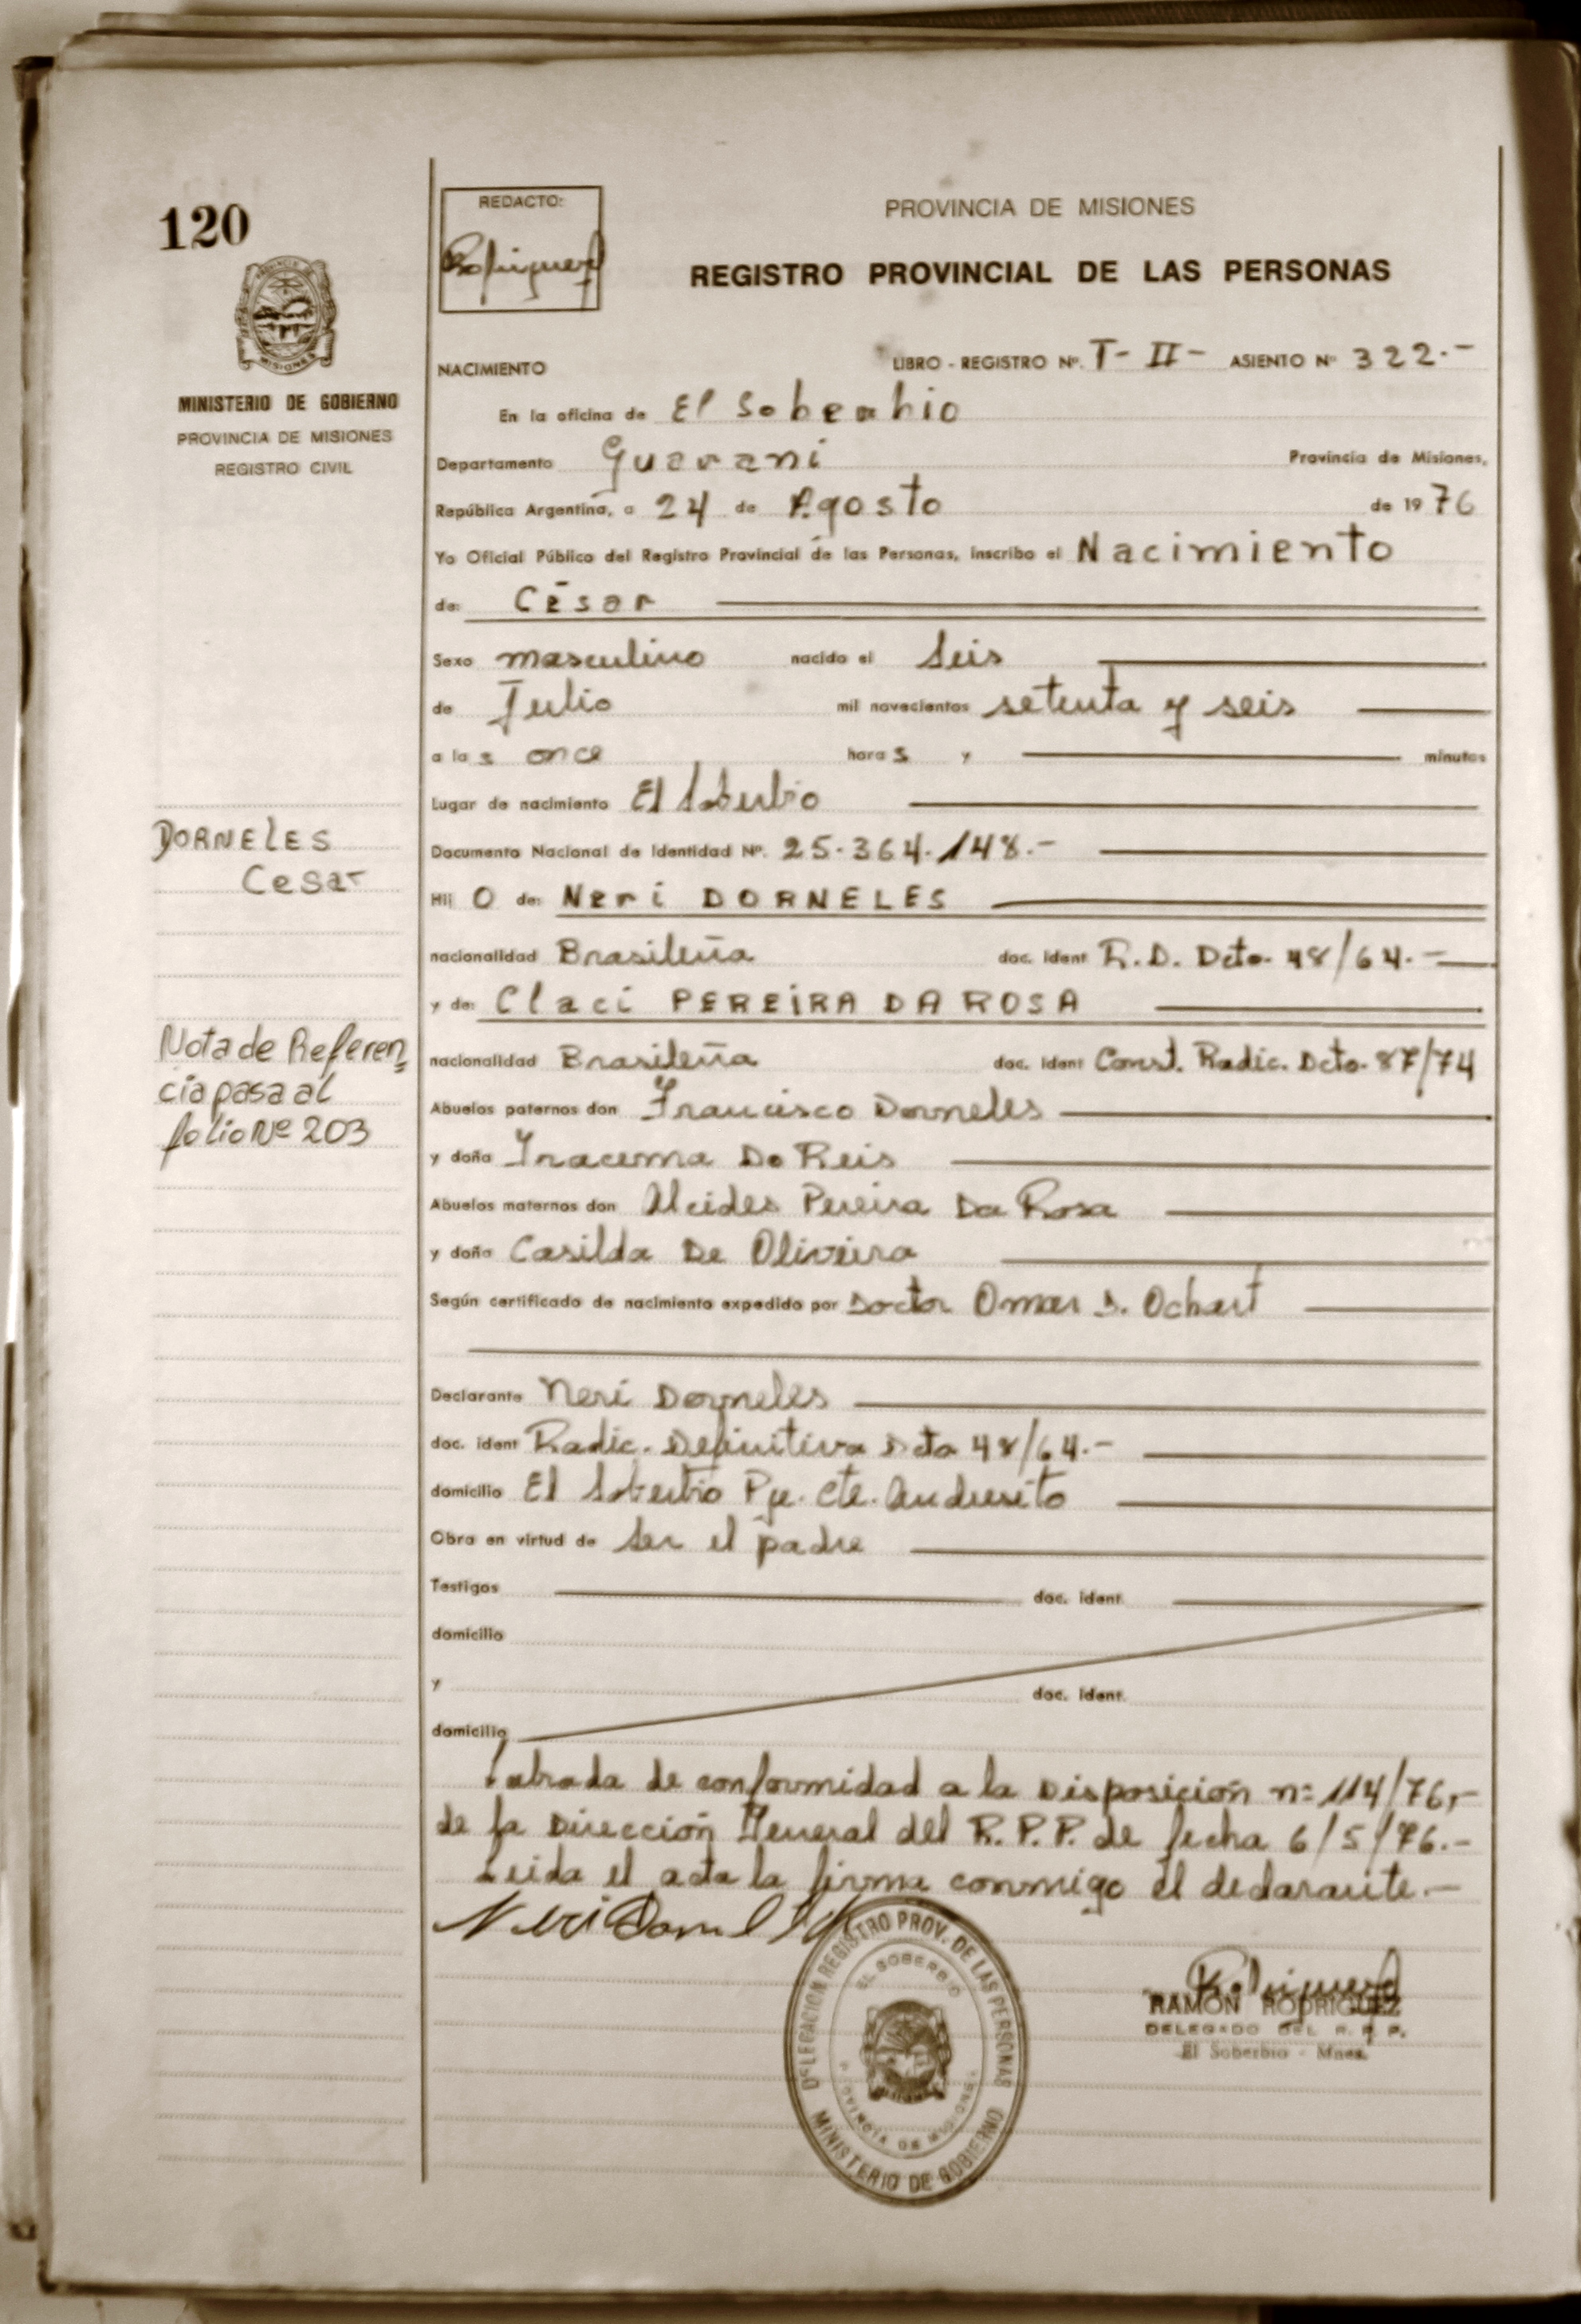 120
REDACTO:
PROVINCIA DE MISIONES
REGISTRO PROVINCIAL DE LAS PERSONAS
MISIONES
MINISTERIO DE GOBIERNO
PROVINCIA DE MISIONES
REGISTRO CIVIL
NACIMIENTO LIBRO - REGISTRO Nº. T- II- ASIENTO Nº 322.-
En la oficina de El Soberbio
Departamento Guarani Provincia de Misiones,
República Argentina, a 24 de Agosto de 1976
Yo Oficial Público del Registro Provincial de las Personas, inscribo el Nacimiento
de: César
Sexo masculino nacido el Seis
de Julio mil novecientos setenta y seis
a las once horas y minutos
Lugar de nacimiento El Soberbio
DORNELES
Cesar
Documento Nacional de Identidad Nº. 25.364.148.-
Hij o de: Neri DORNELES
nacionalidad Brasileña doc. ident R.D. Dcto. 48/64.-
y de: Claci PEREIRA DA ROSA
Nota de Referen
cia pasa al
folio Nº 203
nacionalidad Brasileña doc. ident Const. Radic. Dcto. 87/74
Abuelos paternos don Francisco Dorneles
y doña Iracema Do Reis
Abuelos maternos don Alcides Pereira Da Rosa
y doña Casilda De Oliveira
Según certificado de nacimiento expedido por Doctor Omar D. Ochart
Declarante Neri Dorneles
doc. ident Radic. Definitiva Dcto 48/64.-
domicilio El Soberbio Pje. Cte. Andresito
Obra en virtud de ser el padre
Testigos doc. ident.
domicilio
y doc. ident.
domicilio
Labrada de conformidad a la Disposición nº 114/76,-
de la Dirección General del R.P.P. de fecha 6/5/76.-
Leida el acta la firma conmigo el declarante.-
Neri Dorneles
DELEGACION REGISTRO PROV. DE LAS PERSONAS
EL SOBERBIO
PROVINCIA DE MISIONES
MINISTERIO DE GOBIERNO
RAMON RODRIGUEZ
DELEGADO DEL R. P. P.
El Soberbio - Mnes.